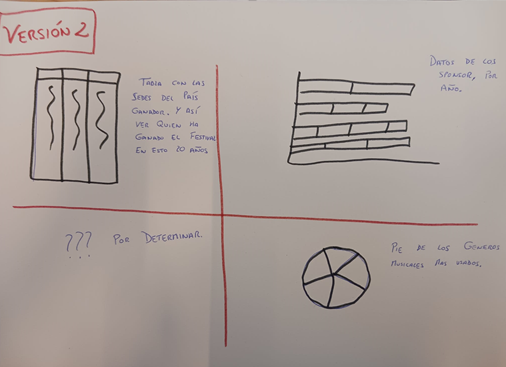 VERSIÓN 2
TABLA CON LAS
SEDES DEL PAÍS
GANADOR. Y ASÍ
VER QUIEN HA
GANADO EL FESTIVAL
EN ESTO 20 AÑOS
DATOS DE LOS
SPONSOR, POR
AÑO.
??? POR DETERMINAR.
PIE DE LOS GENEROS
MUSICALES MAS USADOS.